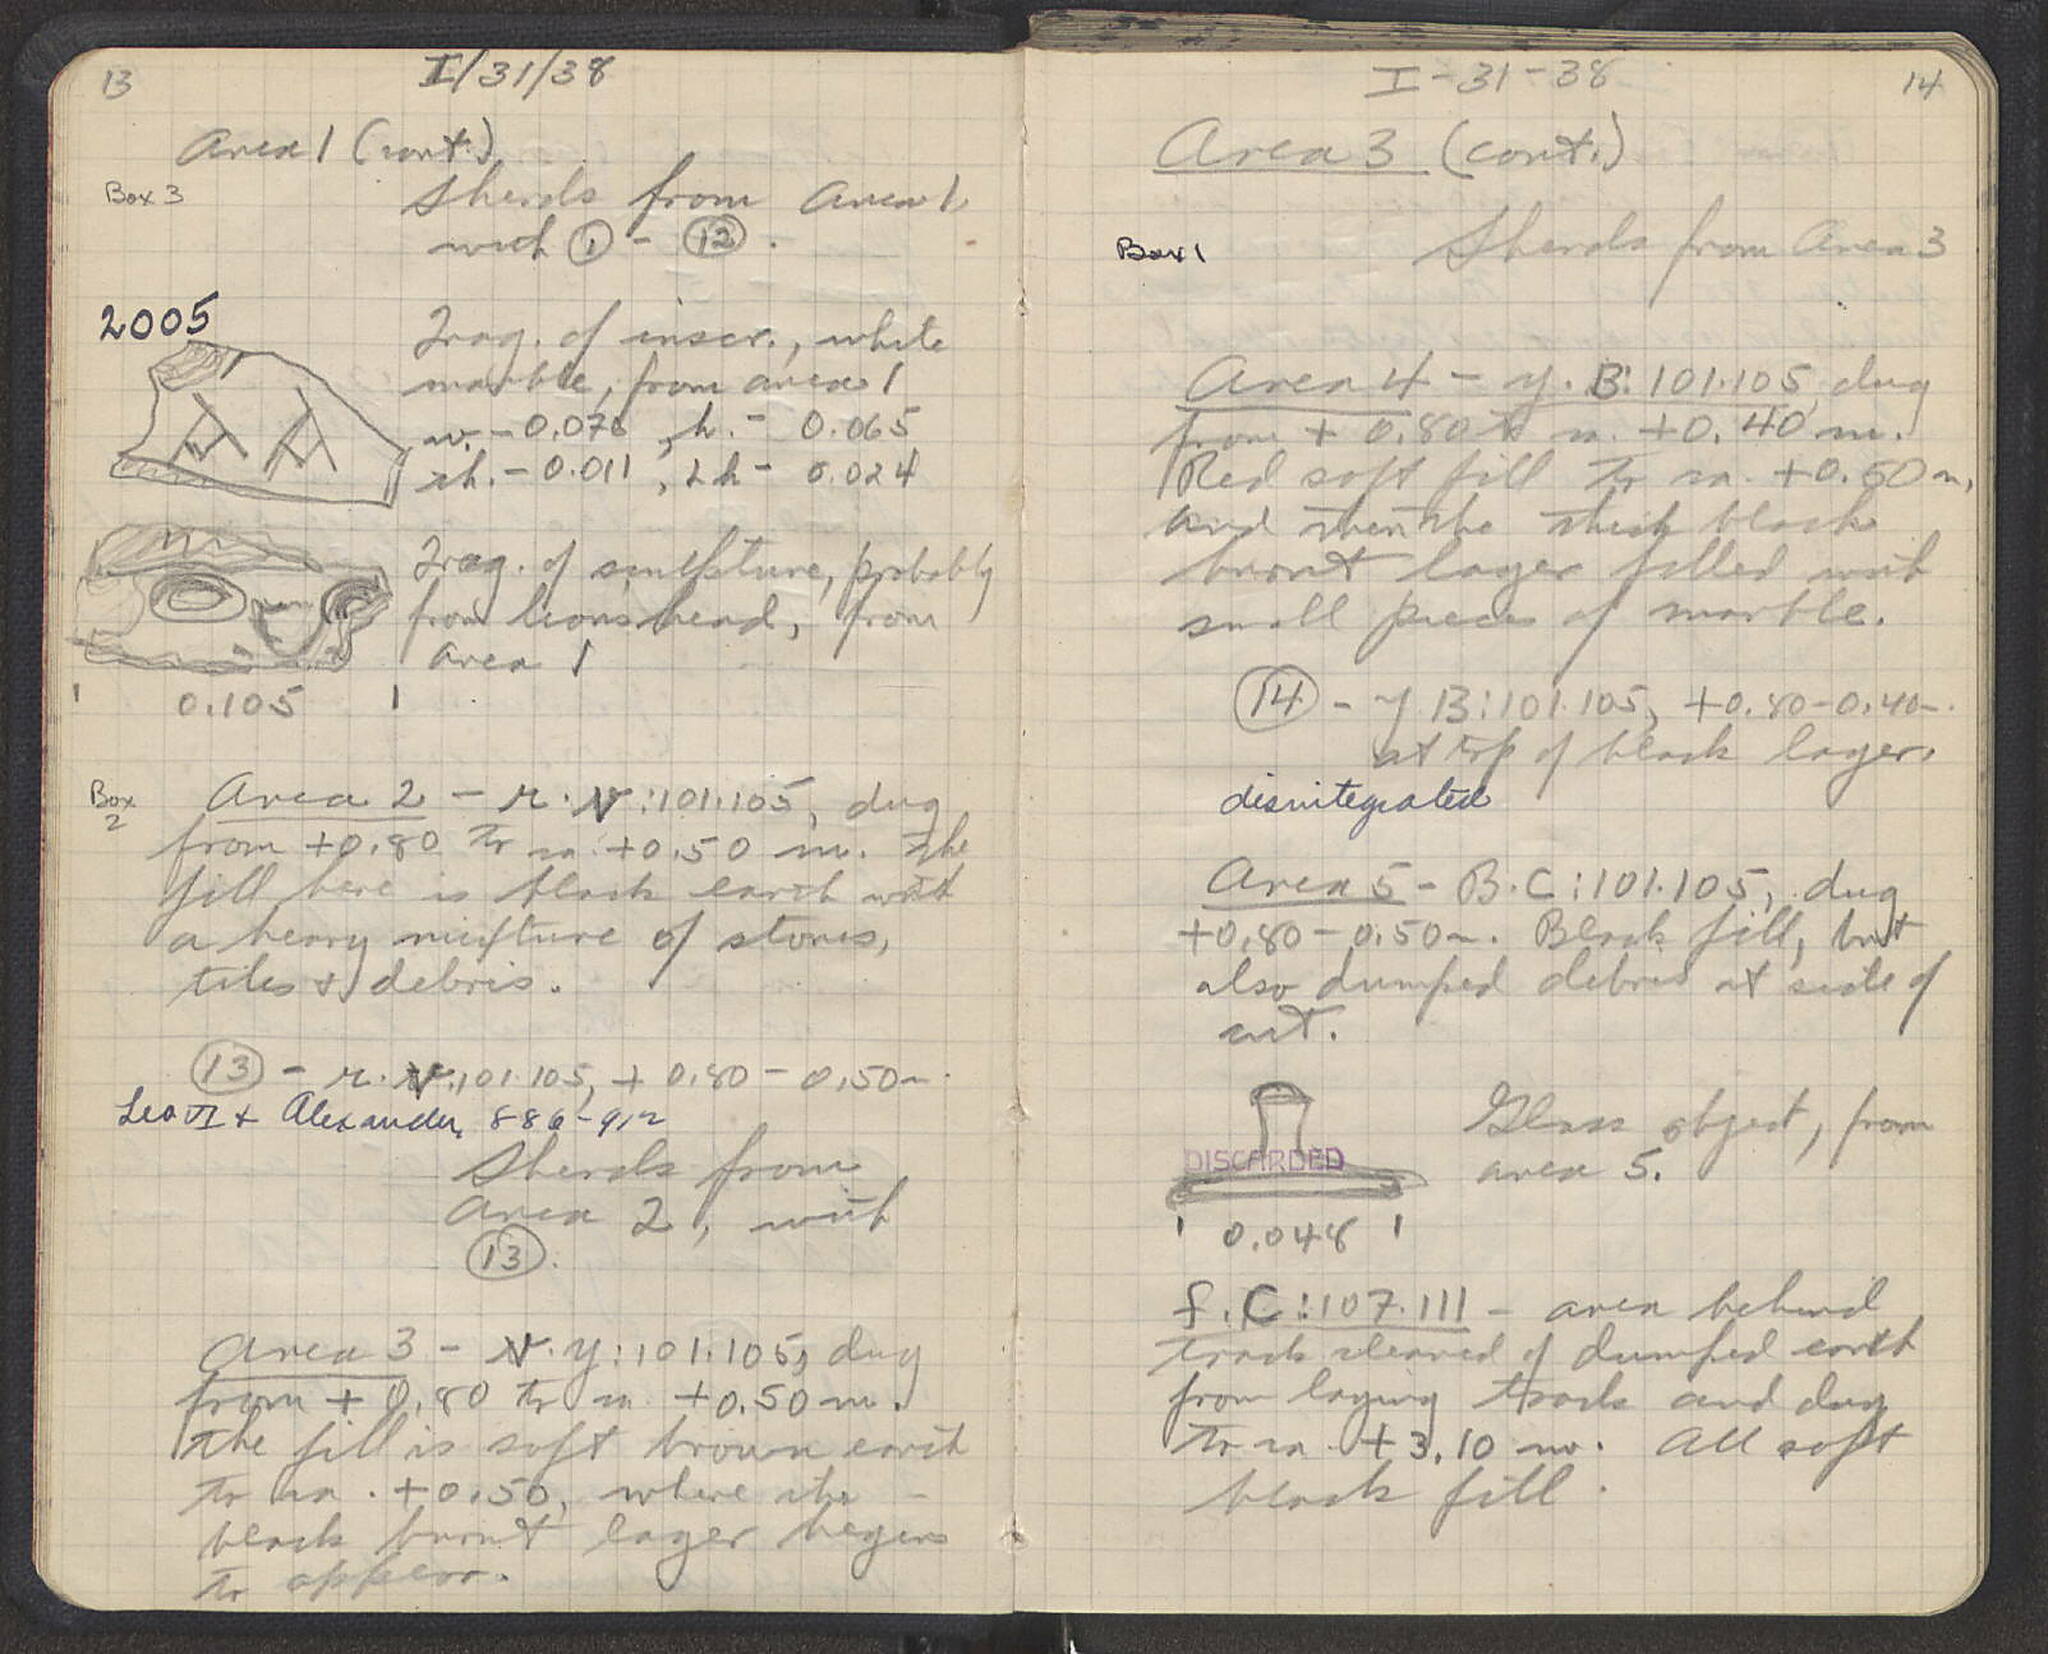 13
I/31/38
Area 1 (cont.)
Box 3
Sherds from Area 1
with ① - ⑫.
2005
Frag. of inscr., white
marble, from area 1
w. - 0.076, h. - 0.065
th. - 0.011, Lh - 0.024
Frag. of sculpture, probably
from lions head, from
area 1
0.105
Box
2
Area 2 - :101.105, dug
from +0.80 to ca. +0.50 m. The
fill here is black earth with
a heavy mixture of stones,
tiles & debris.
⑬ - :101.105, +0.80 - 0.50m.
Leo VI & Alexander, 886-912
Sherds from
Area 2, with
⑬.
Area 3 - :101.105, dug
from +0.80 to ca. +0.50 m.
The fill is soft brown earth
to ca. +0.50, where the
black burnt layer begins
to appear.
I-31-38
14
Area 3 (cont.)
Box 1
Sherds from Area 3
Area 4 - y.B:101.105, dug
from +0.80 to ca. +0.40 m.
Red soft fill to ca. +0.50 m,
and then the thick black
burnt layer filled with
small pieces of marble.
⑭ - y.B:101.105, +0.80-0.40m.
at top of black layer.
disintegrated
Area 5 - B.C:101.105, dug
+0.80-0.50m. Black fill, but
also dumped debris at side of
cut.
DISCARDED
Glass object, from
area 5.
0.048
f.C:107.111 - area behind
track cleared of dumped earth
from laying track and dug
to ca. +3.10 m. All soft
black fill.